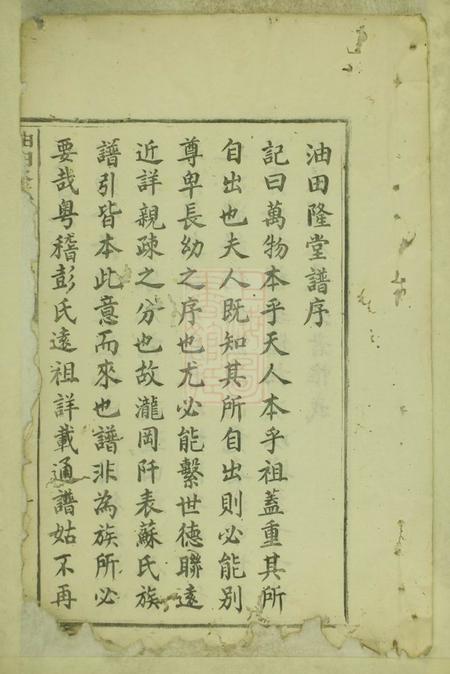 油田隆堂譜序
記曰萬物本乎天人本乎祖蓋重其所
自出也夫人既知其所自出則必能別
尊卑長幼之序也尤必能繫世德聯遠
近詳親疎之分也故瀧岡阡表蘇氏族
譜引皆本此意而來也譜非為族所必
要哉粤稽彭氏遠祖詳載通譜姑不再
油田